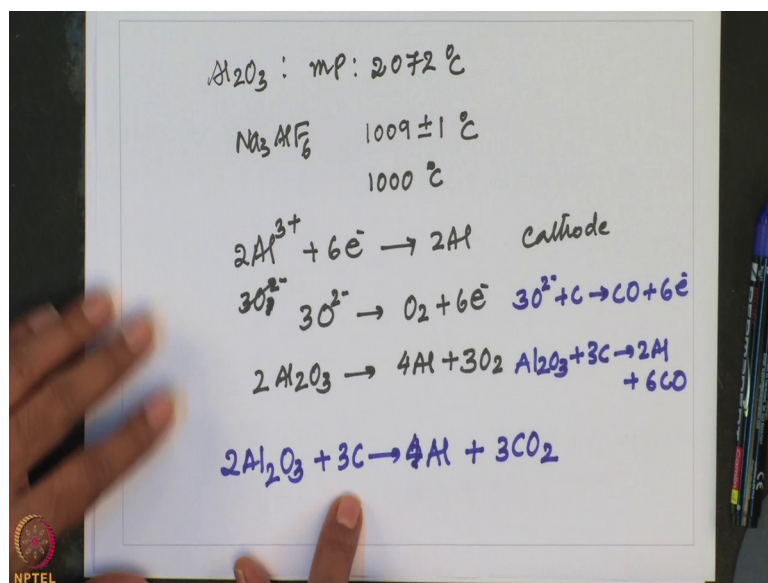 Al₂O₃ : mp : 2072 °C
Na₃AlF₆ 1009 ± 1 °C
1000 °C
2Al³⁺ + 6e⁻ → 2Al Cathode
3O²⁻ 3O²⁻ → O₂ + 6e⁻ 3O²⁻ + C → CO + 6e⁻
2Al₂O₃ → 4Al + 3O₂ Al₂O₃ + 3C → 2Al
+ 6CO
2Al₂O₃ + 3C → 4Al + 3CO₂
NPTEL